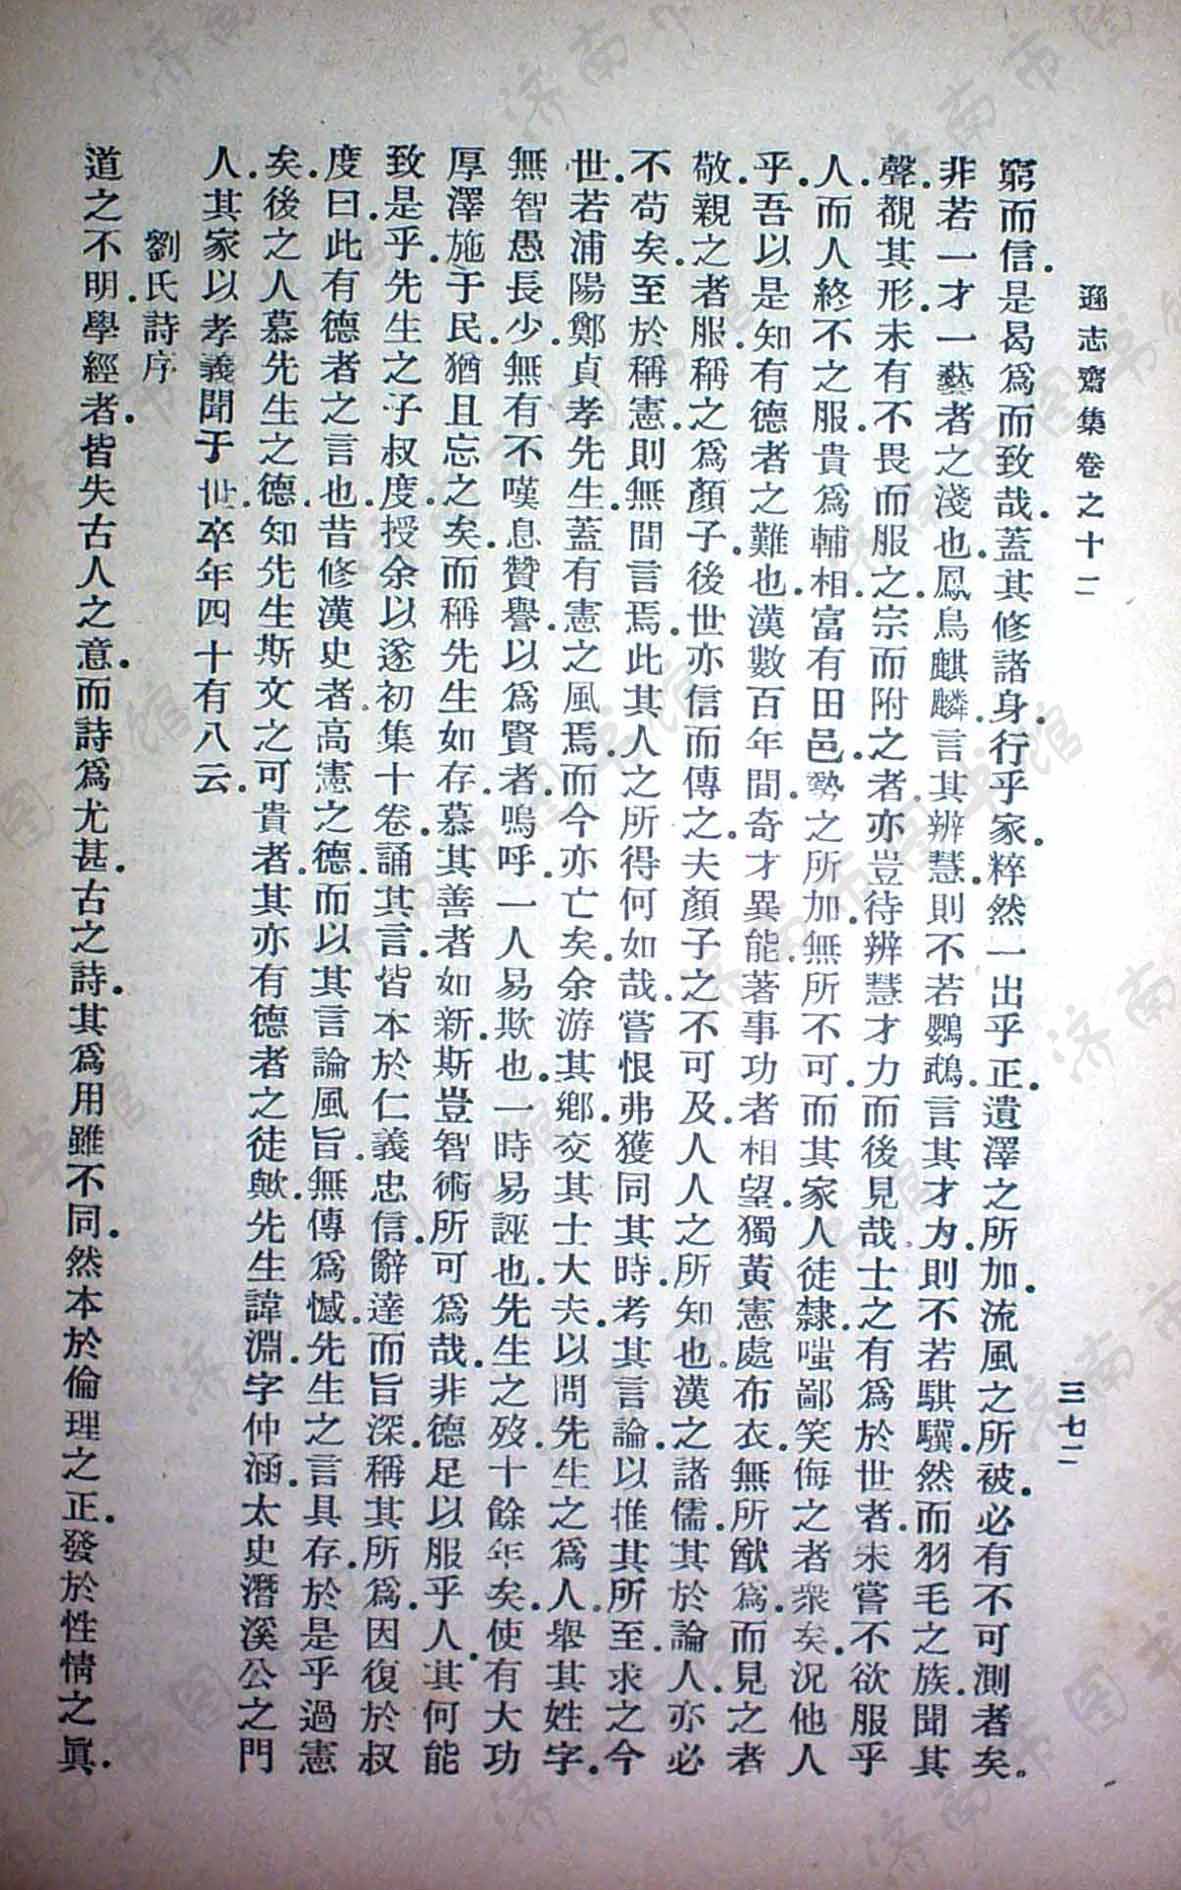 遜志齋集卷之十二
三七二
窮而信是曷爲而致哉蓋其修諸身行乎家粹然一出乎正遺澤之所加流風之所被必有不可測者矣
非若一才一藝者之淺也鳳鳥麒麟言其辨慧則不若鸚鵡言其才力則不若騏驥然而羽毛之族聞其
聲覩其形未有不畏而服之宗而附之者亦豈待辨慧才力而後見哉士之有爲於世者未嘗不欲服乎
人而人終不之服貴爲輔相富有田邑勢之所加無所不可而其家人徒隸嗤鄙笑侮之者衆矣況他人
乎吾以是知有德者之難也漢數百年間奇才異能著事功者相望獨黃憲處布衣無所猷爲而見之者
敬親之者服稱之爲顏子後世亦信而傳之夫顏子之不可及人人之所知也漢之諸儒其於論人亦必
不苟矣至於稱憲則無間言焉此其人之所得何如哉嘗恨弗獲同其時考其言論以推其所至求之今
世若浦陽鄭貞孝先生蓋有憲之風焉而今亦亡矣余游其鄕交其士大夫以問先生之爲人舉其姓字
無智愚長少無有不嘆息贊譽以爲賢者嗚呼一人易欺也一時易誣也先生之歿十餘年矣使有大功
厚澤施于民猶且忘之矣而稱先生如存慕其善者如新斯豈智術所可爲哉非德足以服乎人其何能
致是乎先生之子叔度授余以遂初集十卷誦其言皆本於仁義忠信辭達而旨深稱其所爲因復於叔
度曰此有德者之言也昔修漢史者高憲之德而以其言論風旨無傳爲憾先生之言具存於是乎過憲
矣後之人慕先生之德知先生斯文之可貴者其亦有德者之徒歟先生諱淵字仲涵太史潛溪公之門
人其家以孝義聞于世卒年四十有八云
劉氏詩序
道之不明學經者皆失古人之意而詩爲尤甚古之詩其爲用雖不同然本於倫理之正發於性情之眞